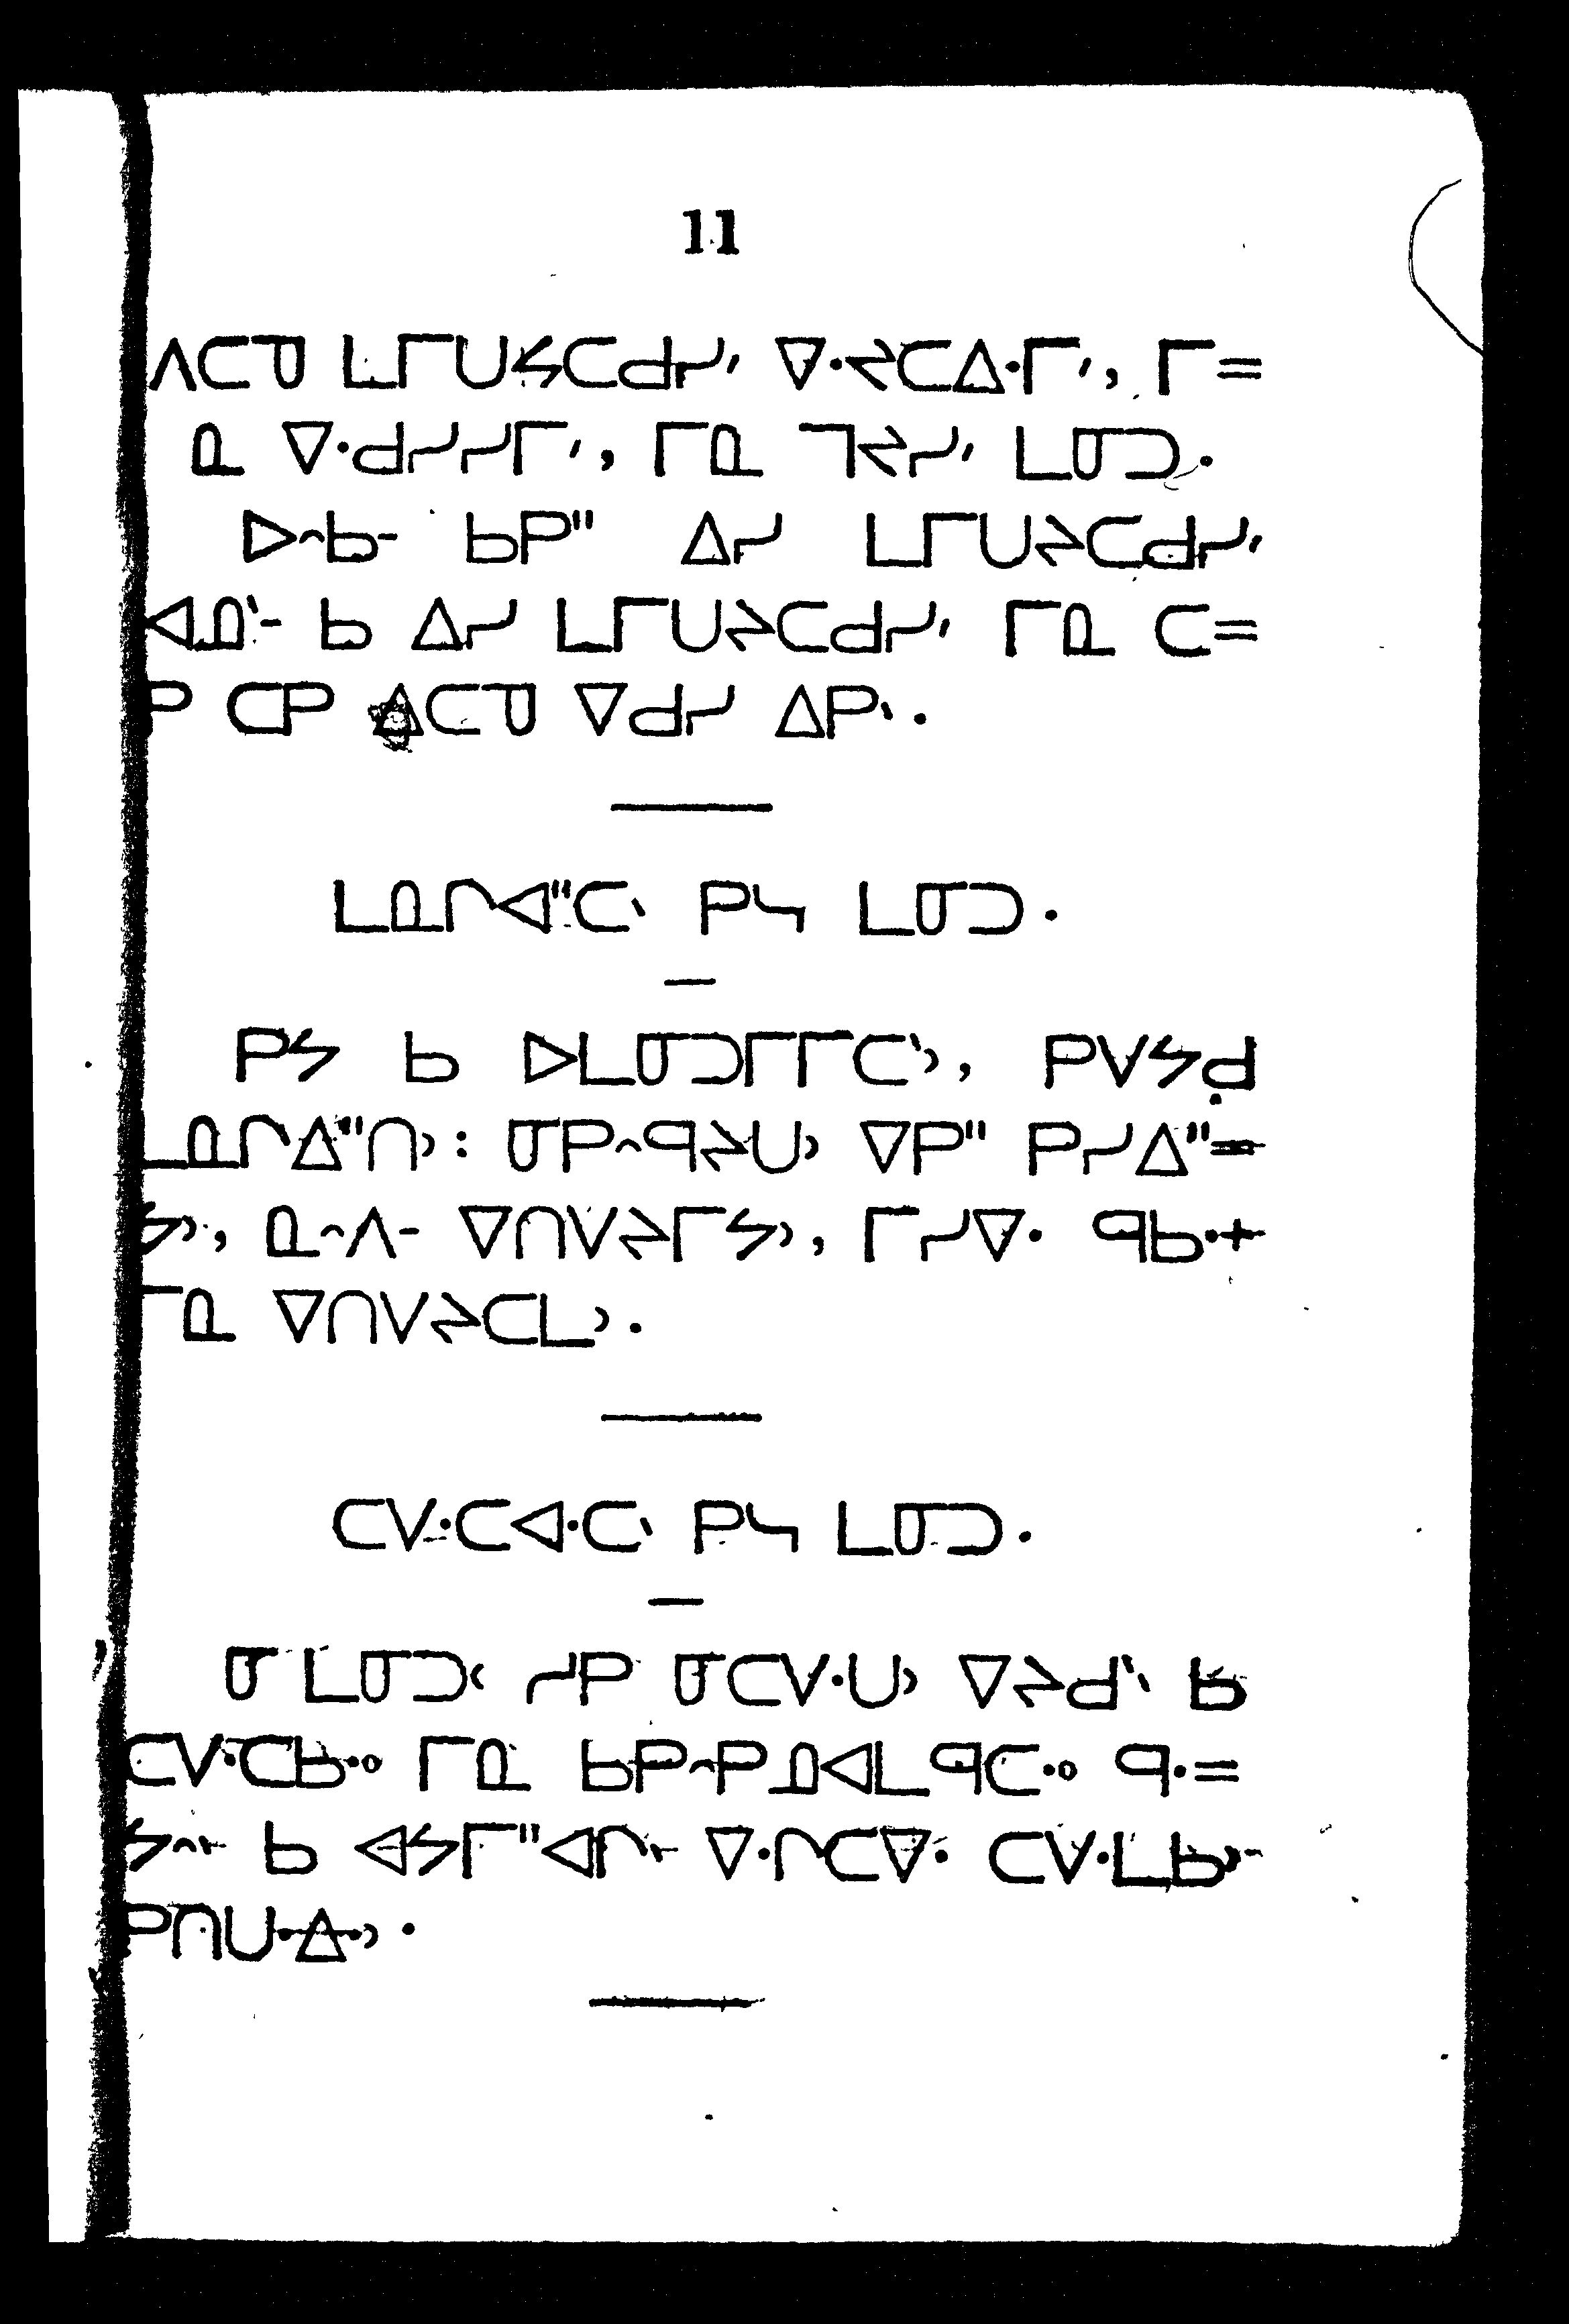 11
ᐱᑕᑯ ᒪᒥᑌᔕᑕᑯᓯᐟ ᐁᐧᔦᑕᐃᐧᒥᐟ, ᒥ=
ᓇ ᐁᐧᑯᓯᓯᒥᐟ, ᒥᓇ ᒣᔦᓯᐟ ᒪᓂᑐ.
ᐅᐢᑲᐨ ᑲᑭᐦ ᐃᓯ ᒪᒥᑌᔨᑕᑯᓯᐟ
ᐊᓇᐠᐨ ᑲ ᐃᓯ ᒪᒥᑌᔨᑕᑯᓯᐟ ᒥᓇ ᑕ=
ᑭ ᑕᑭ ᐃᑕᑯ ᐁᑯᓯ ᐃᑭᐠ.
ᒪᓇᒋᐊᐦᑕᐠ ᑭᓴ ᒪᓂᑐ.
ᑭᔕ ᑲ ᐅᒪᓂᑐᒥᒥᑕᐠᐣ, ᑭᐯᔕᑯ
ᒪᓇᒋᐃᐦᑎᐣ: ᓂᑭᐢᑫᔨᑌᐣ ᐁᑭᐦ ᑭᓯᐃᐦ=
ᔕᐣ, ᓇᐢᐱᐨ ᐁᑎᐯᔨᒥᔕᐣ, ᒥᓯᐁᐧ ᑫᑲᐧᐩ
ᒥᓇ ᐁᑎᐯᔨᑕᒪᐣ.
ᑕᐯᐧᑕᐊᐧᑕᐠ ᑭᓴ ᒪᓂᑐ.
ᓂ ᒪᓂᑐᑦ ᓯᑭ ᓂᑕᐯᐧᑌᐣ ᐁᔨᑯᐠᐠ ᑲ
ᑕᐯᐧᑕᑲᐧᐤ ᒥᓇ ᑲᑭᐢᑭᓄᐊᒪᑫᑕᐧᐤ ᑫᐧ=
ᔕᐢᐠ ᑲ ᐊᔕᒥᐦᐊᒋᐠ ᐁᐧᒋᑕᐁᐧ ᑕᐯᐧᒪᑲᐣ
ᑭᑎᑌᐧᐃᐧᐣ.